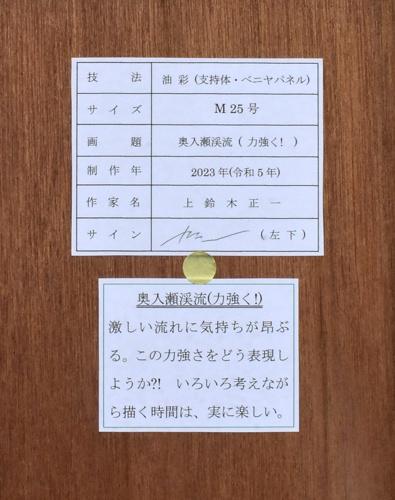 技法 油彩 (支持体・ベニヤパネル)
サイズ M 25 号
画題 奥入瀬渓流 ( 力強く! )
制作年 2023 年(令和 5 年)
作家名 上鈴木正一
サイン (左下)
奥入瀬渓流(力強く!)
激しい流れに気持ちが昂ぶ
る。この力強さをどう表現し
ようか?! いろいろ考えなが
ら描く時間は、実に楽しい。